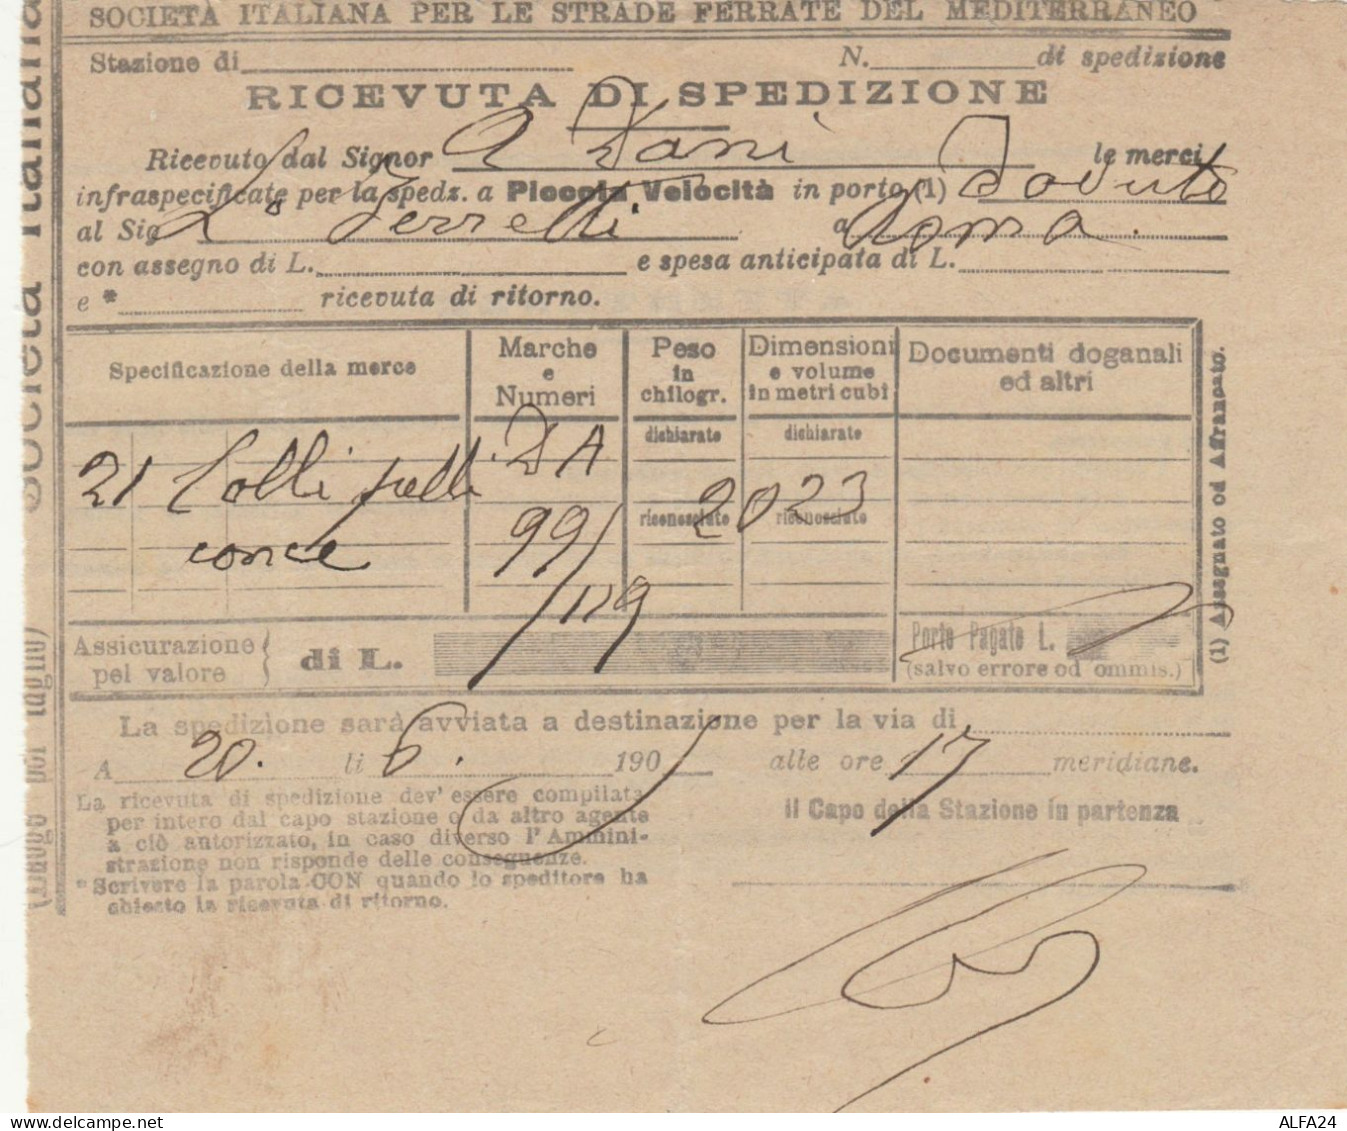 SOCIETÀ ITALIANA PER LE STRADE FERRATE DEL MEDITERRANEO
Stazione di N. di spedizione
RICEVUTA DI SPEDIZIONE
Ricevuto dal Signor A Dani le merci
infraspecificate per la spedz. a Piccola Velocità in porto (1) Dovuto
al Sig Lo Ferretti a Roma.
con assegno di L. e spesa anticipata di L.
e * ricevuta di ritorno.
Specificazione della merce
Marche e Numeri
Peso in chilogr.
Dimensioni e volume in metri cubi
Documenti doganali ed altri
dichiarato dichiarate
21 Colli pelli DA
riconosciuto 2023 riconosciute
conce 99/
/119
Assicurazione pel valore di L.
Porto Pagato L.
(salvo errore od ommis.)
La spedizione sarà avviata a destinazione per la via di
A 20. li 6. 190 alle ore 17 meridiane.
La ricevuta di spedizione dev' essere compilata
per intero dal capo stazione o da altro agente
a ciò autorizzato, in caso diverso l'Ammini-
strazione non risponde delle conseguenze.
*Scrivere la parola CON quando lo speditore ha
chiesto la ricevuta di ritorno.
Il Capo della Stazione in partenza
(1) Assegnato od Affrancato.
Società Italiana
(Luogo pel taglio)
ALFA24